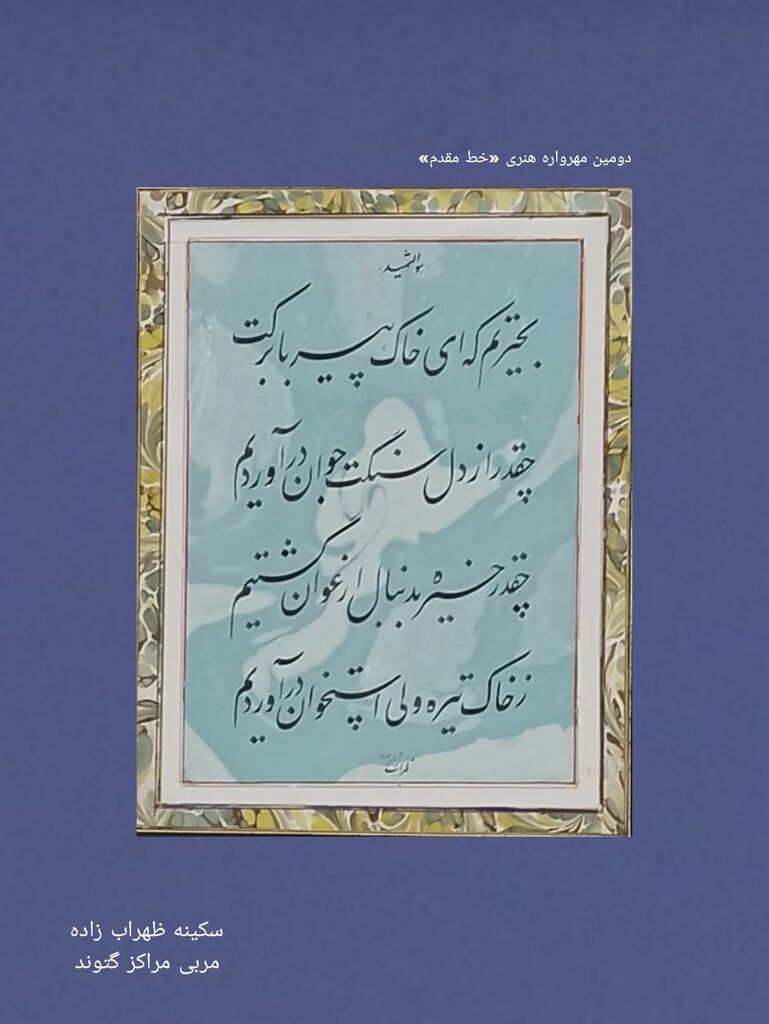 دومین مهرواره هنری «خط مقدم»
هوالشهید
بخیر تیم که ای خاک پیر با برکت
چقدر از دل سنگت جوان درآوردیم
چقدر خیره بدنبال ارغوان گشتیم
زخاک تیره ولی استخوان درآوردیم
ظهراب زاده
سکینه ظهراب زاده
مربی مراکز گتوند